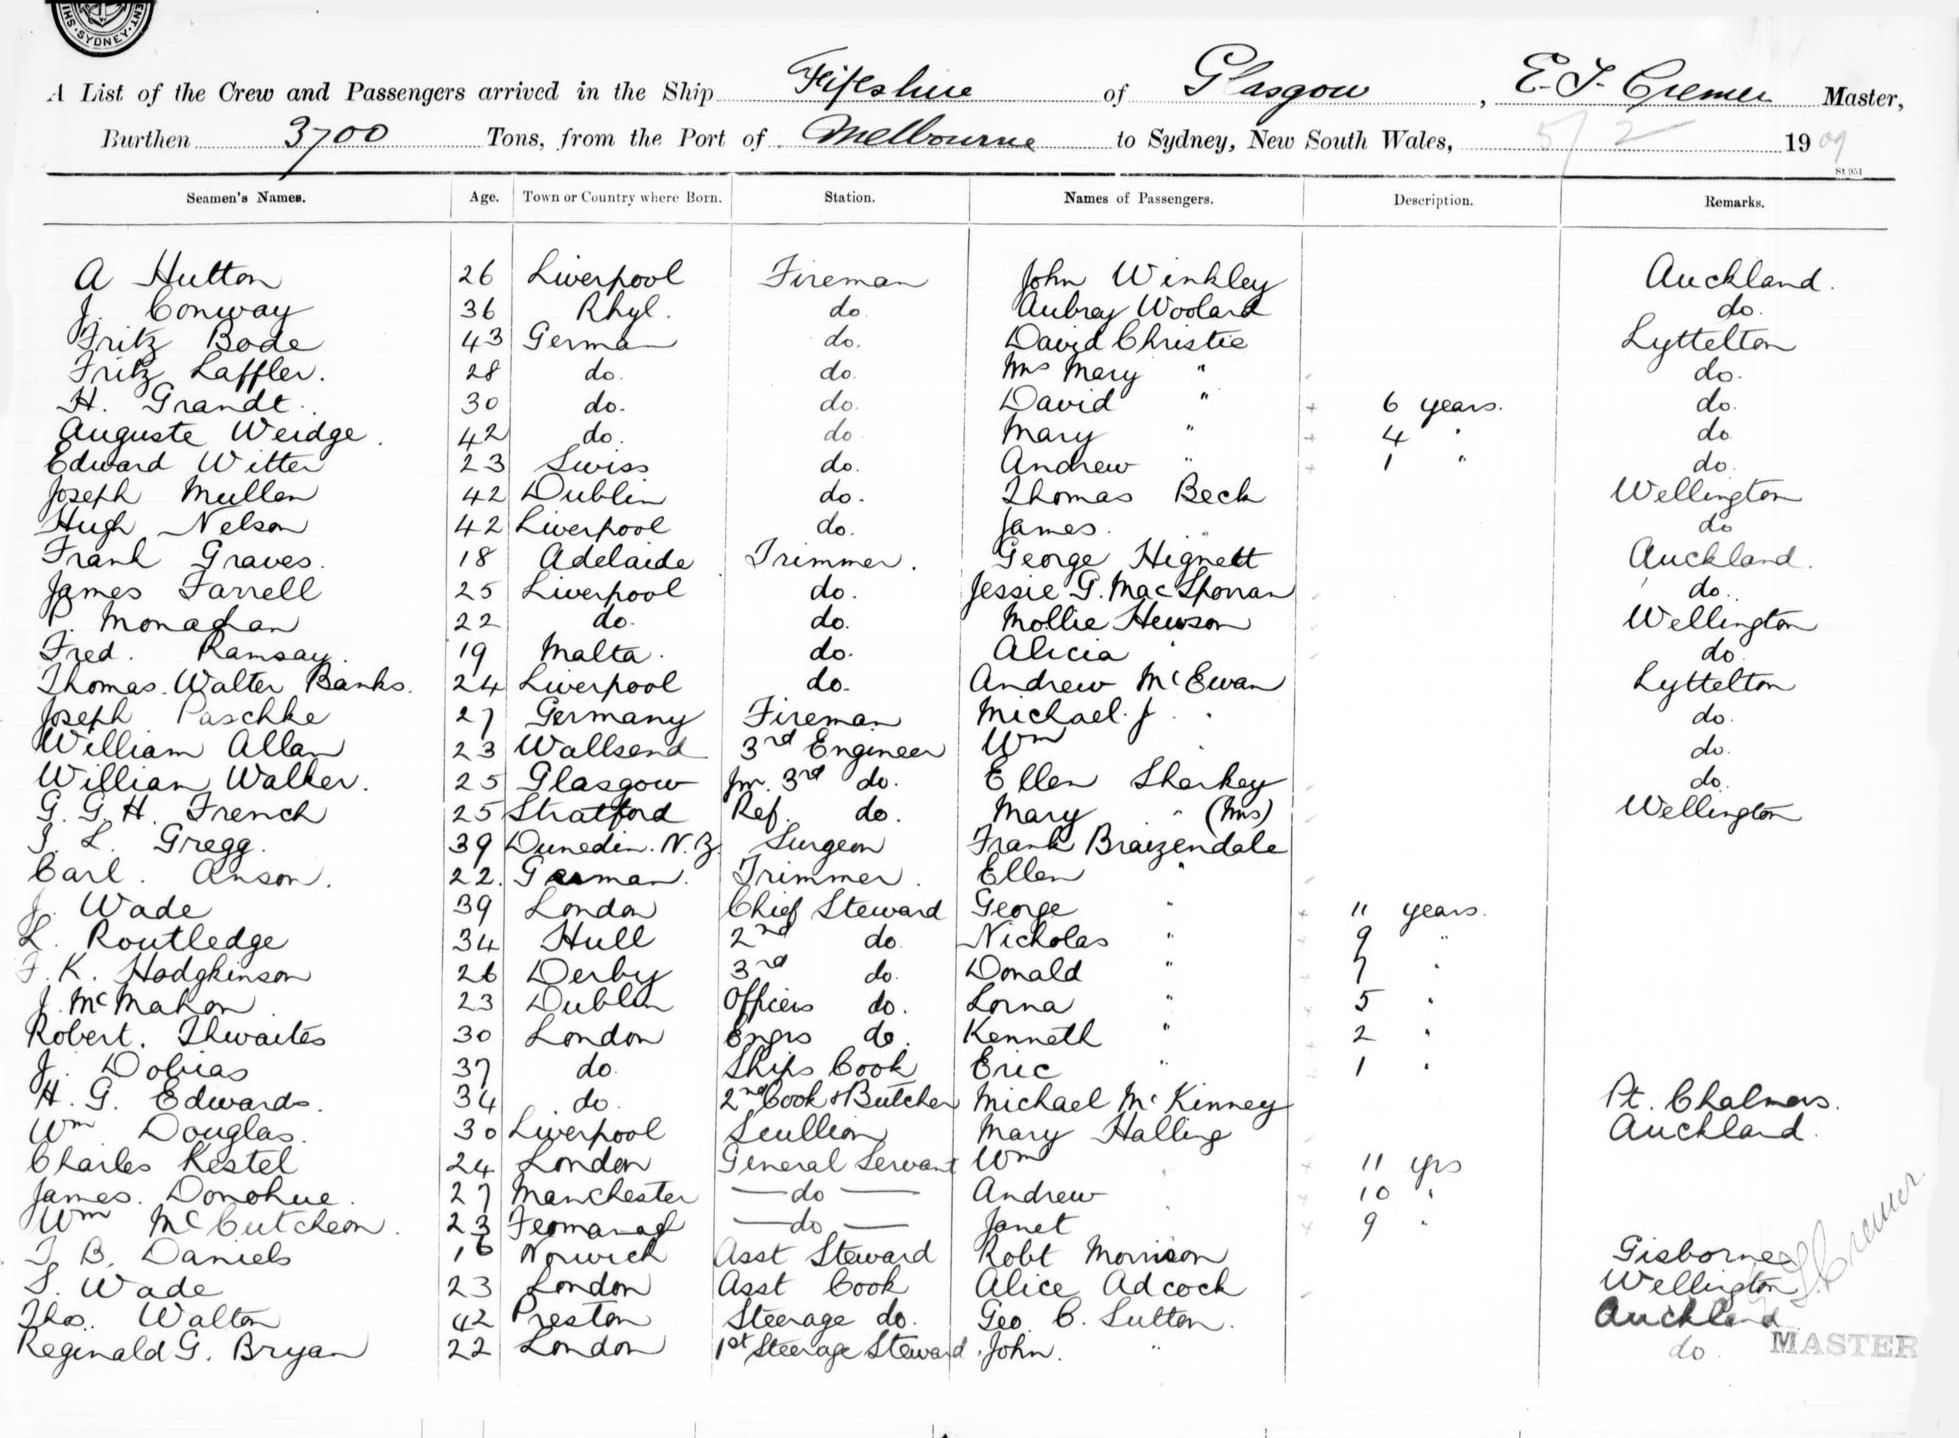 SYDNEY
A List of the Crew and Passengers arrived in the Ship Fifeshire of Glasgow, E. J. Cremer Master,
Burthen 3700 Tons, from the Port of Melbourne to Sydney, New South Wales, 5/2 1909
St 951
Seamen's Names. Age. Town or Country where Born. Station. Names of Passengers. Description. Remarks.
A Hutton 26 Liverpool Fireman John Winkley Auckland.
J. Conway 36 Rhyl. do. Aubrey Woolard do.
Fritz Bode 43 German do. David Christie Lyttelton
Fritz Laffler. 28 do. do. Mrs Mary " do.
H. Grandt. 30 do. do. David " 6 years. do.
Auguste Weidge. 42 do. do Mary " 4 " do.
Edward Witter 23 Swiss do. Andrew " 1 " do.
Joseph Mullen 42 Dublin do. Thomas Beck Wellington
Hugh Nelson 42 Liverpool do. James. " do
Frank Graves. 18 Adelaide Trimmer. George Hignett Auckland.
James Farrell 25 Liverpool do. Jessie G. MacSporran do.
P. Monaghan 22 do. do. Mollie Hewson Wellington
Fred. Ramsay. 19 Malta. do. Alicia " do.
Thomas. Walter Banks. 24 Liverpool do. Andrew McEwan Lyttelton
Joseph Paschke 27 Germany Fireman Michael. J. " do.
William Allan 23 Wallsend 3rd Engineer Wm " do.
William Walker. 25 Glasgow Jnr. 3rd do. Ellen Sharkey do.
G. G. H. French 25 Stratford Ref. do. Mary " (Mrs) Wellington
J. L. Gregg. 39 Dunedin. N.Z. Surgeon Frank Braizendale
Carl. Anson. 22. German. Trimmer. Ellen "
J. Wade 39 London Chief Steward George " 11 years.
L. Routledge 34 Hull 2nd do. Nicholas " 9 "
F. K. Hodgkinson 26 Derby 3rd do. Donald " 7 "
J. McMahon 23 Dublin Officers do. Lorna " 5 "
Robert. Thwaites 30 London Engrs do. Kenneth " 2 "
J. Dobias 37 do. Ships Cook Eric " 1 "
H. G. Edwards. 34 do. 2nd Cook & Butcher Michael McKinney Pt. Chalmers.
Wm Douglas. 30 Liverpool Scullion Mary Halling Auckland.
Charles Kestel 24 London General Servant Wm " 11 yrs
James. Donohue. 27 Manchester — do — Andrew " 10 "
Wm McCutcheon. 23 — do — Janet " 9 "
B. Daniels 16 Norwich Asst Steward Robt Morrison Gisborne
S. Wade 23 London Asst Cook Alice Adcock Wellington
Thos. Walton 42 Preston Steerage do. Geo. C. Sutton. Auckland
Reginald G. Bryan 22 London 1st Steerage Steward John. " do.
Cremer
MASTER